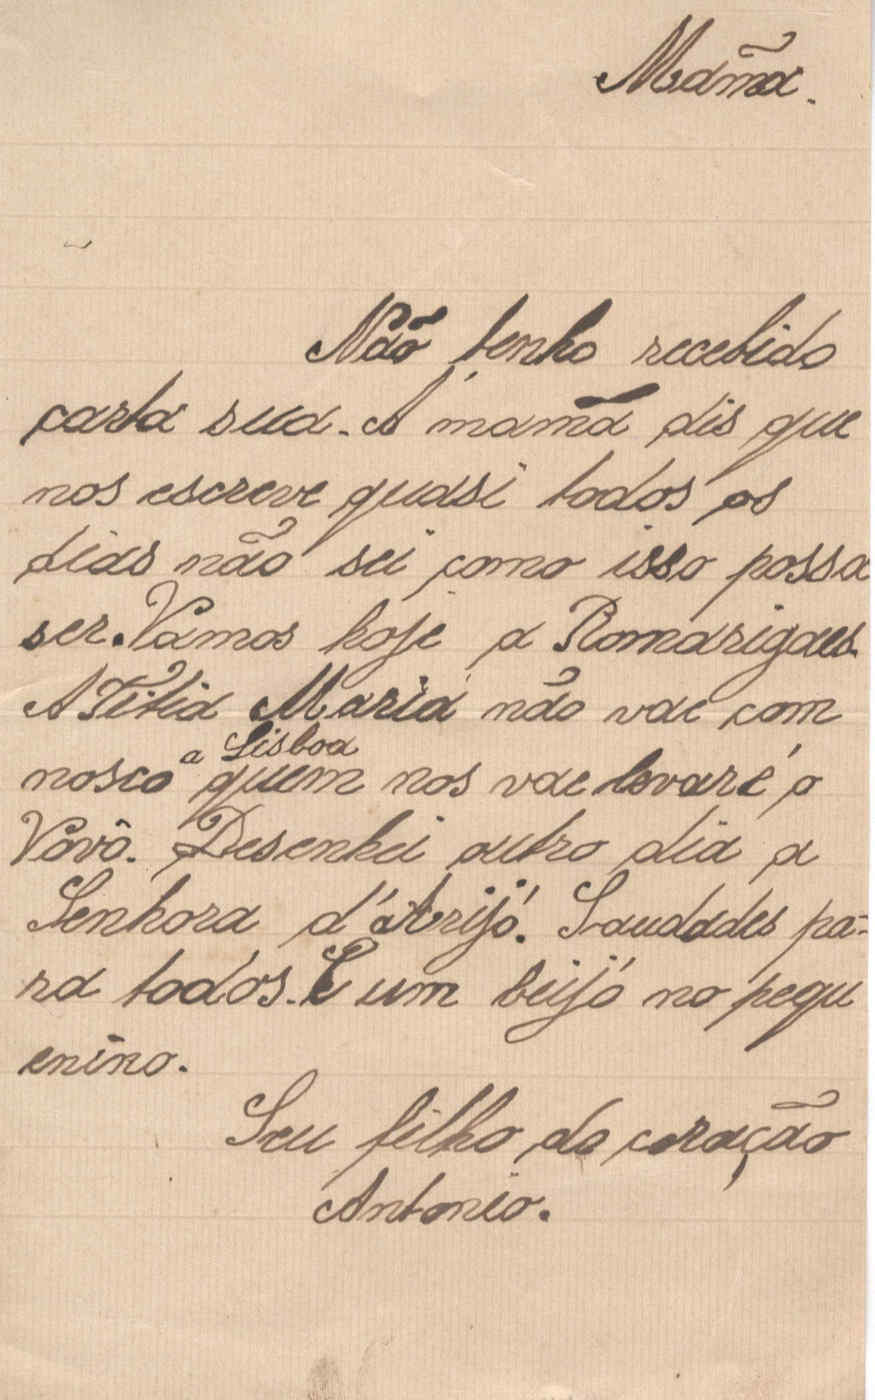 Mamã.
Não tenho recebido
carta sua. A mamã dis que
nos escreve quasi todos os
dias não sei como isso possa
ser. Vamos hoje a Romarigaes.
A Titia Maria não vae com
a Lisboa
nosco quem nos vae levar é o
Vovô. Desenhei outro dia a
Senhora d'Arijó. Saudades pa-
ra todos. E um beijo no pequ
enino.
Seu filho do coração
Antonio.